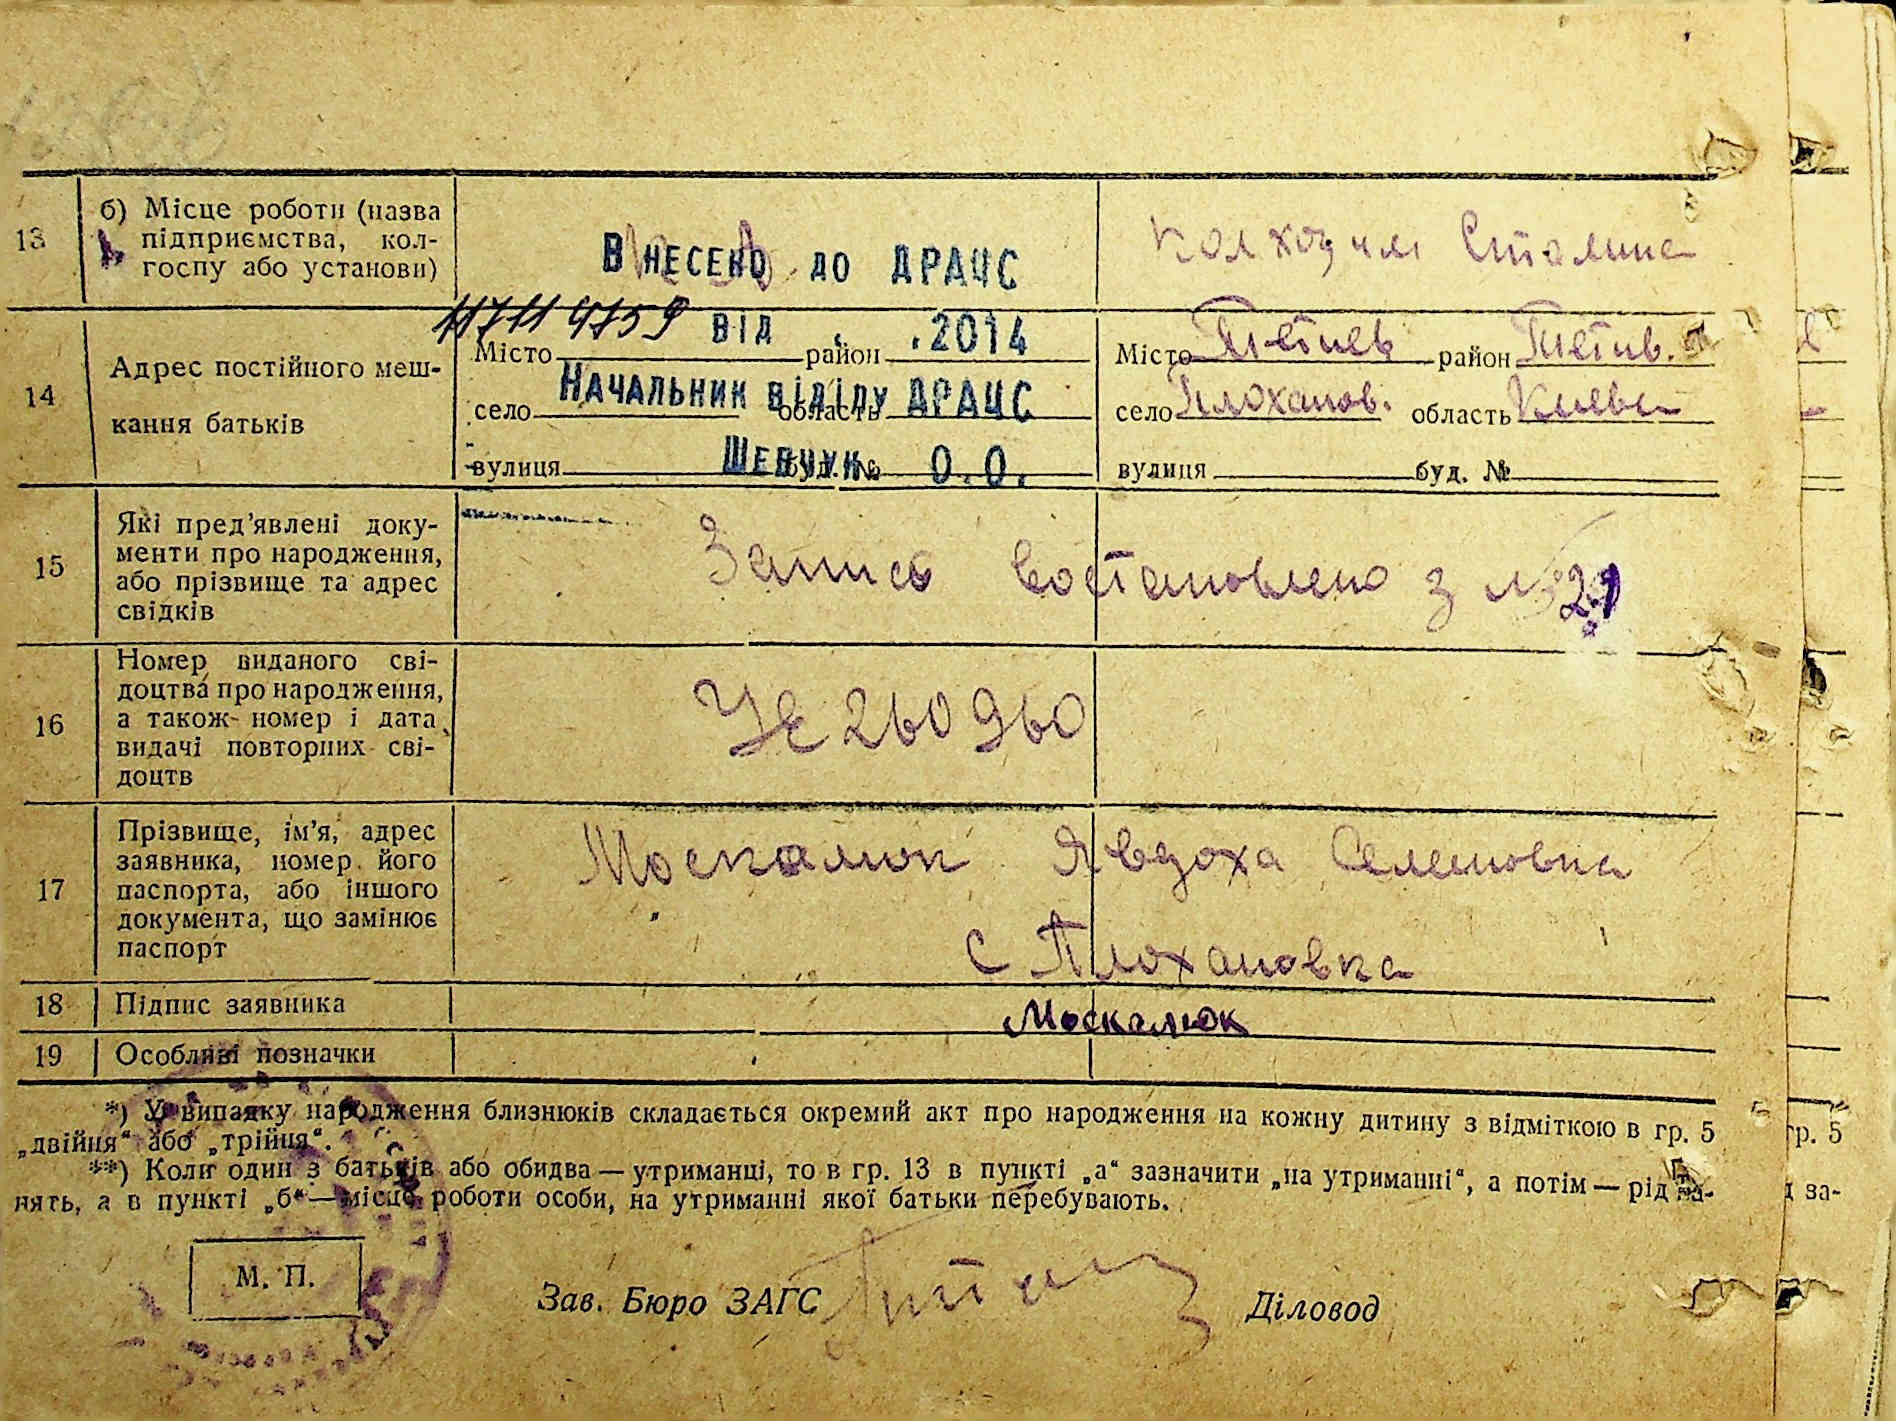 13
б) Місце роботи (назва
підприємства, кол-
госпу або установи)
ВНЕСЕНО ДО ДРАЦС
Колхоз им Сталина
11711 4759 ВІД . .2014
14
Адрес постійного меш-
кання батьків
Місто район
НАЧАЛЬНИК ВІДІЛУ ДРАЦС
село область
ШЕВЧУК О.О.
вулиця буд. №
Місто Тетиев район Тетив.
село Плоханов. область Киевск
вулиця буд. №
15
Які пред'явлені доку-
менти про народження,
або прізвище та адрес
свідків
Запись востановлено з №
16
Номер виданого сві-
доцтва про народження,
а також номер і дата
видачі повторних сві-
доцтв
УЄ 260960
17
Прізвище, ім'я, адрес
заявника, номер його
паспорта, або іншого
документа, що замінює
паспорт
Москалюк Явдоха Семеновна
С Плохановка
18 Підпис заявника
Москалюк
19 Особливі позначки
*) У випадку народження близнюків складається окремий акт про народження на кожну дитину з відміткою в гр. 5
гр. 5
„двійня“ або „трійня“.
**) Коли один з батьків або обидва — утриманці, то в гр. 13 в пункті „а“ зазначити „на утриманні“, а потім — рід за-
за-
нять, а в пункті „б“ — місце роботи особи, на утриманні якої батьки перебувають.
М. П.
Зав. Бюро ЗАГС
Діловод